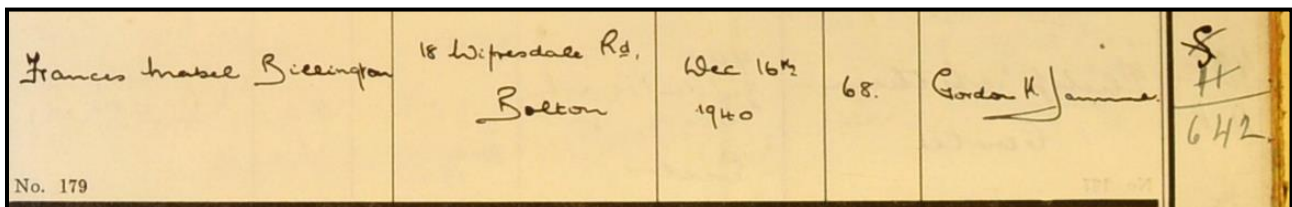 Frances Mabel Billington
18 Wifresdale Rd,
Bolton
Dec 16th
1940
68.
Gordon K
S
H
642
No. 179